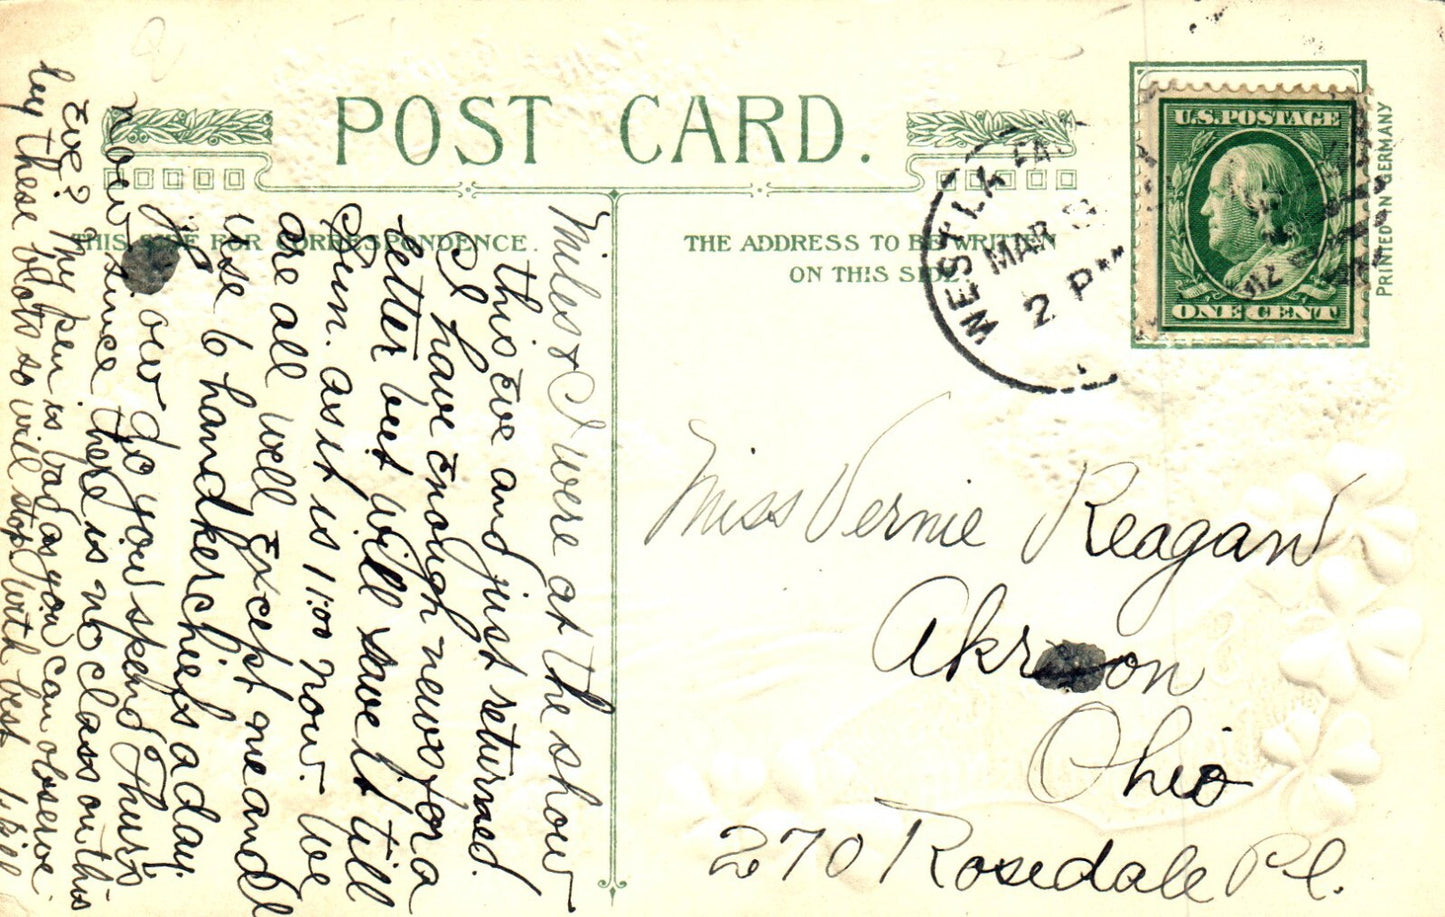 POST CARD.
THIS SIDE FOR CORRESPONDENCE.
THE ADDRESS TO BE WRITTEN
ON THIS SIDE
U.S. POSTAGE
ONE CENT
PRINTED IN GERMANY
WESTLA
MAR
2 PM
Miss Vernie Reagan
Akron
Ohio
270 Rosedale Pl.
Miles & I were at the show
this eve and just returned.
I have enough news for a
letter but will save it till
Sun. as it is 11:00 now. We
are all well except me and I
use 6 handkerchiefs a day.
How do you spend Thurs
now since there is no class on this
Eve? My pen is bad as you can observe
by these blots so will stop with best